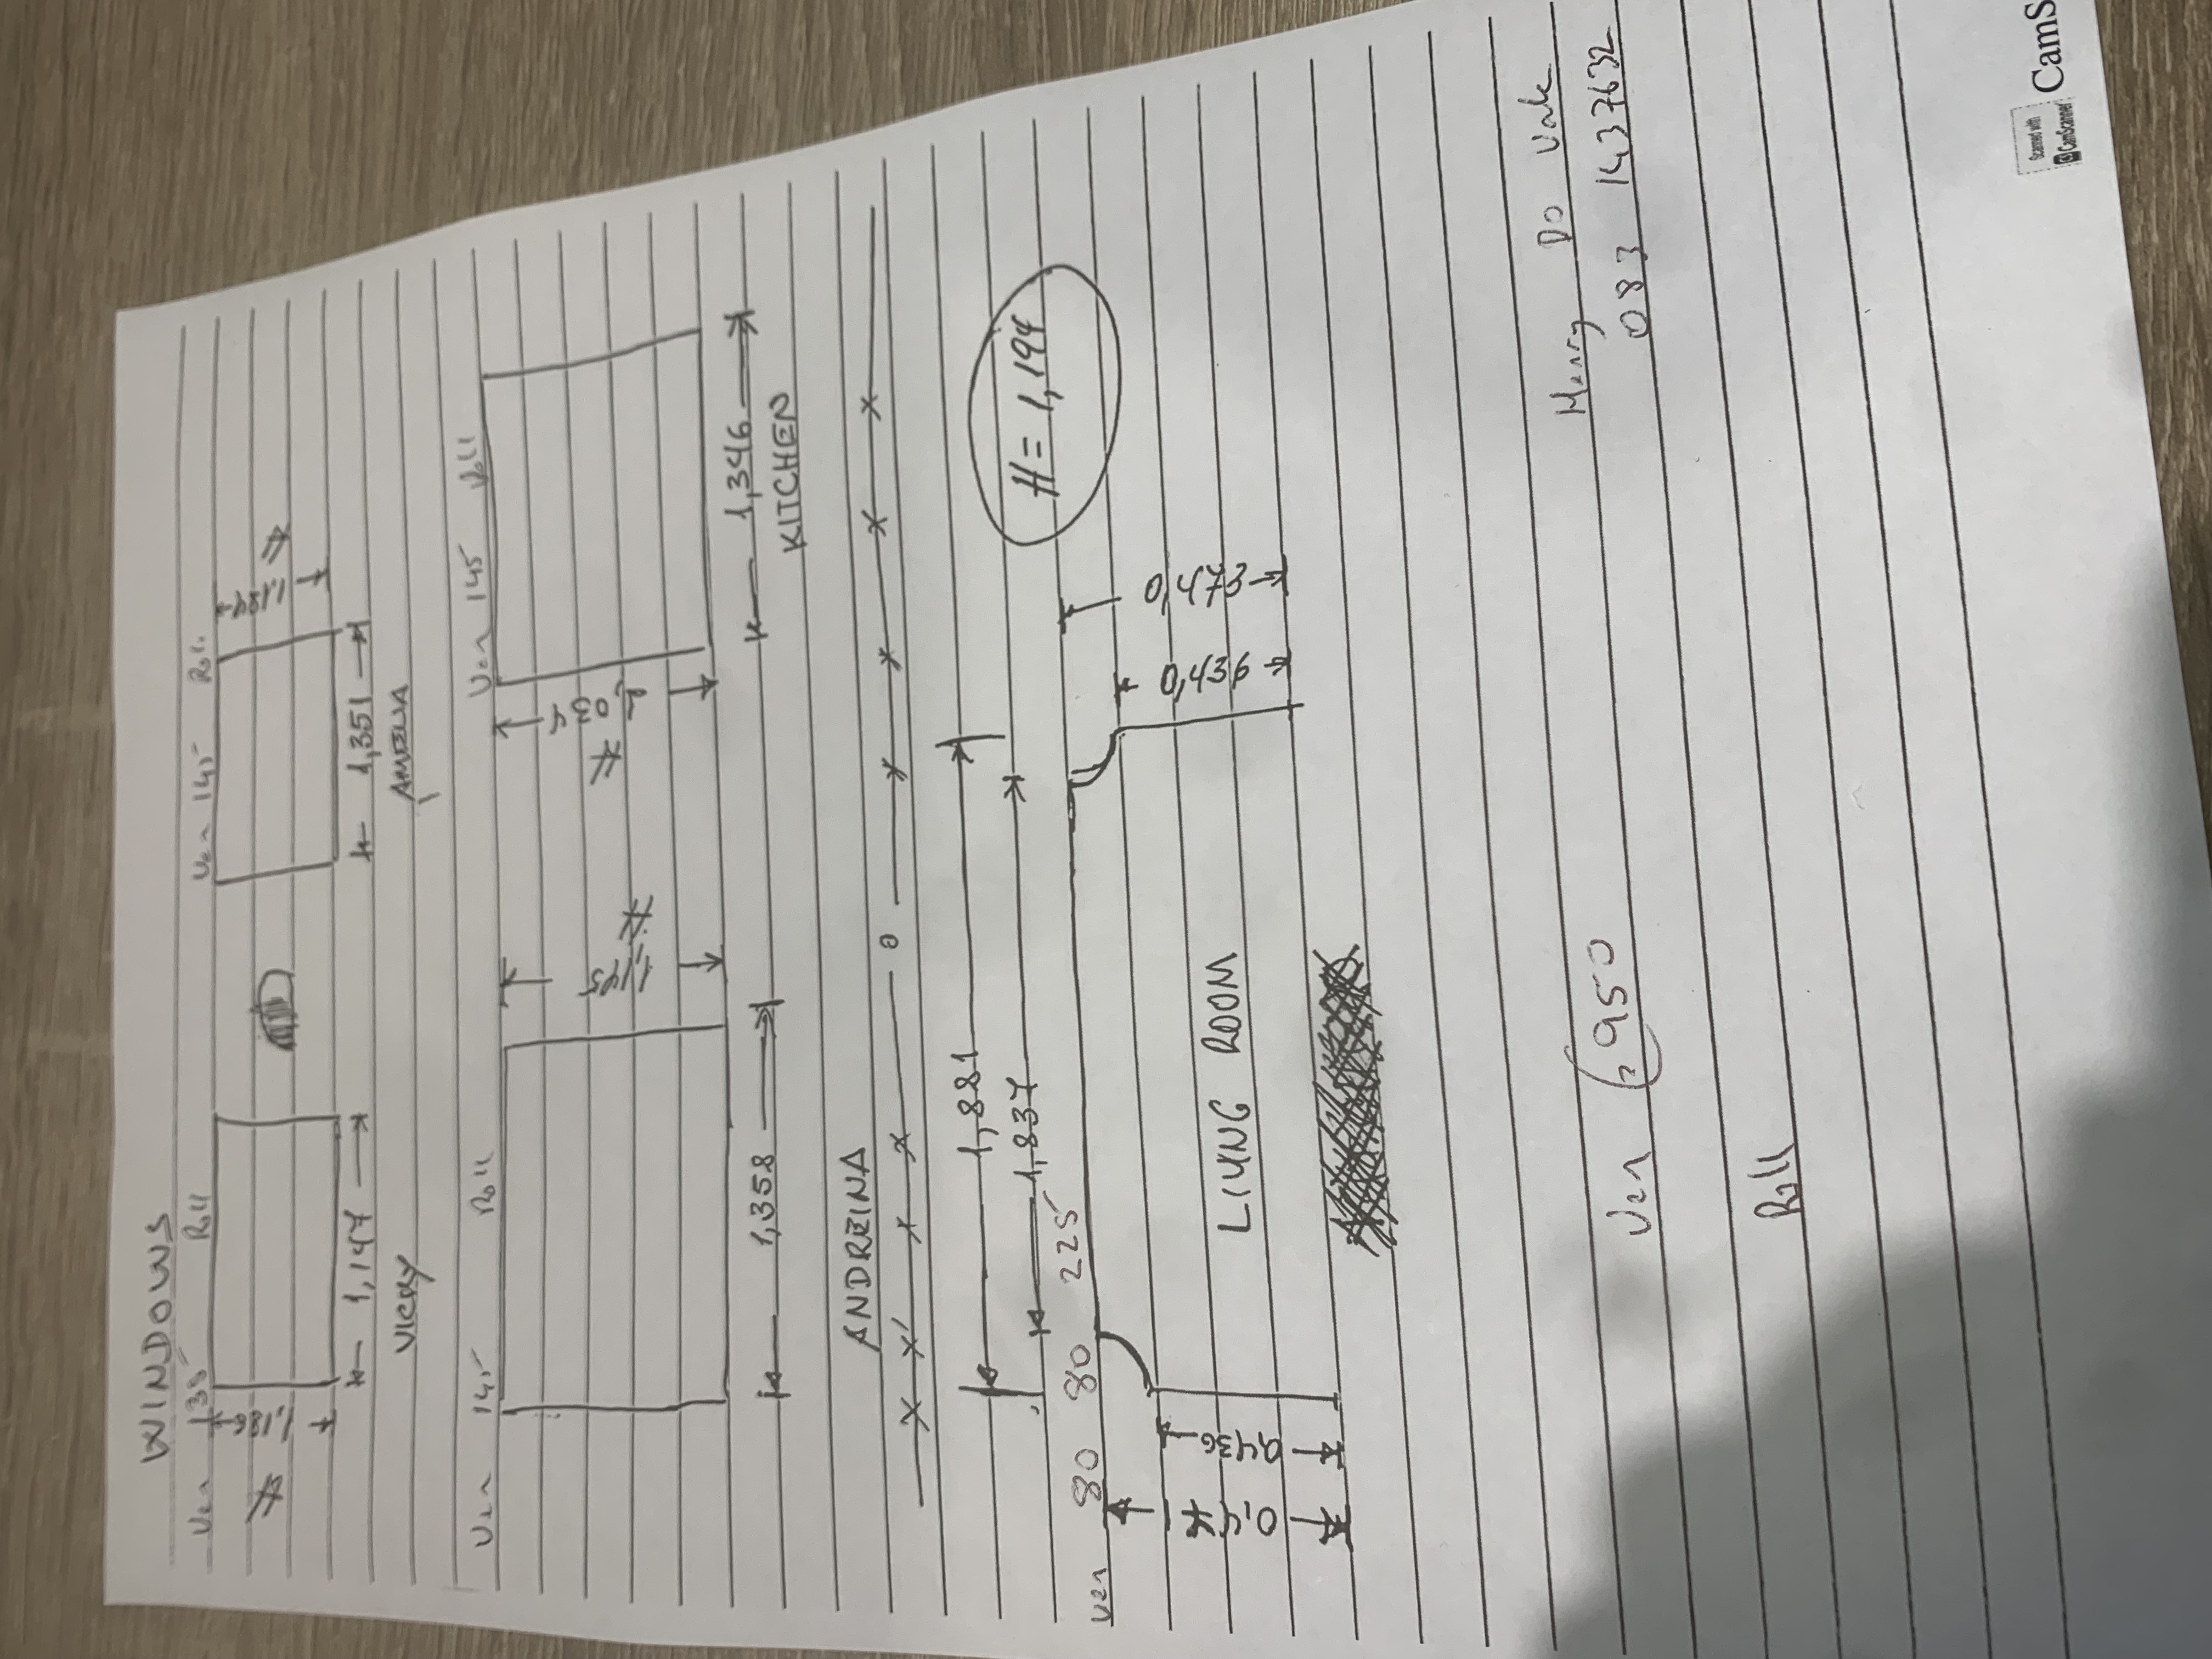 WINDOWS
Ven 135 Roll
Ven 145 Roll
1,147
VICKY
1,351
Ven 145 Roll
1,145
Ven 145 Roll
1,034
1,358
ANDREINA
1,346
KITCHEN
1,881
1,837
H = 1,194
Ven 80 80 225
0,436
0,436
0,473
LIVING ROOM
Ven 2950
Roll
083 1437632
Scanned with
CamScanner
CamS